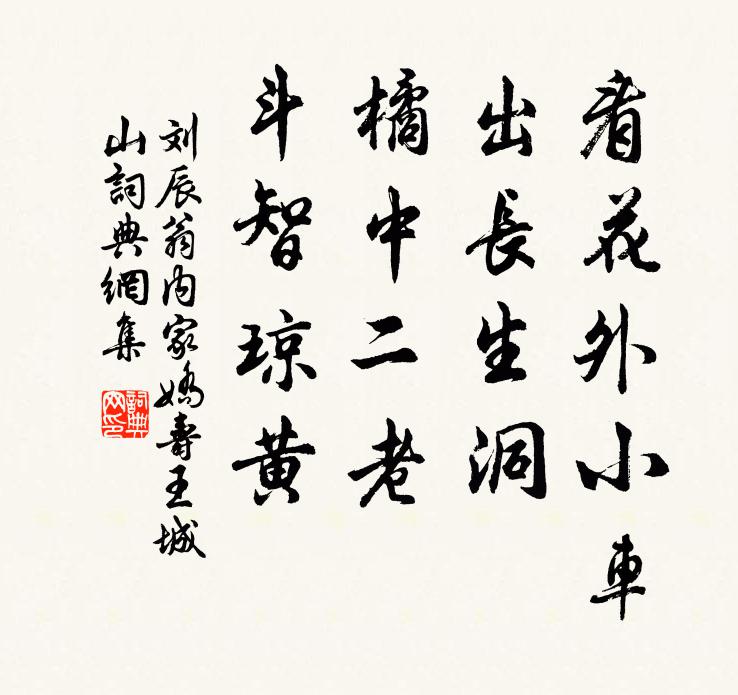 看花外小車
出長生洞
橘中二老
斗智琼黄
刘辰翁内家嬌壽王城
山詞典網集
詞典
网印